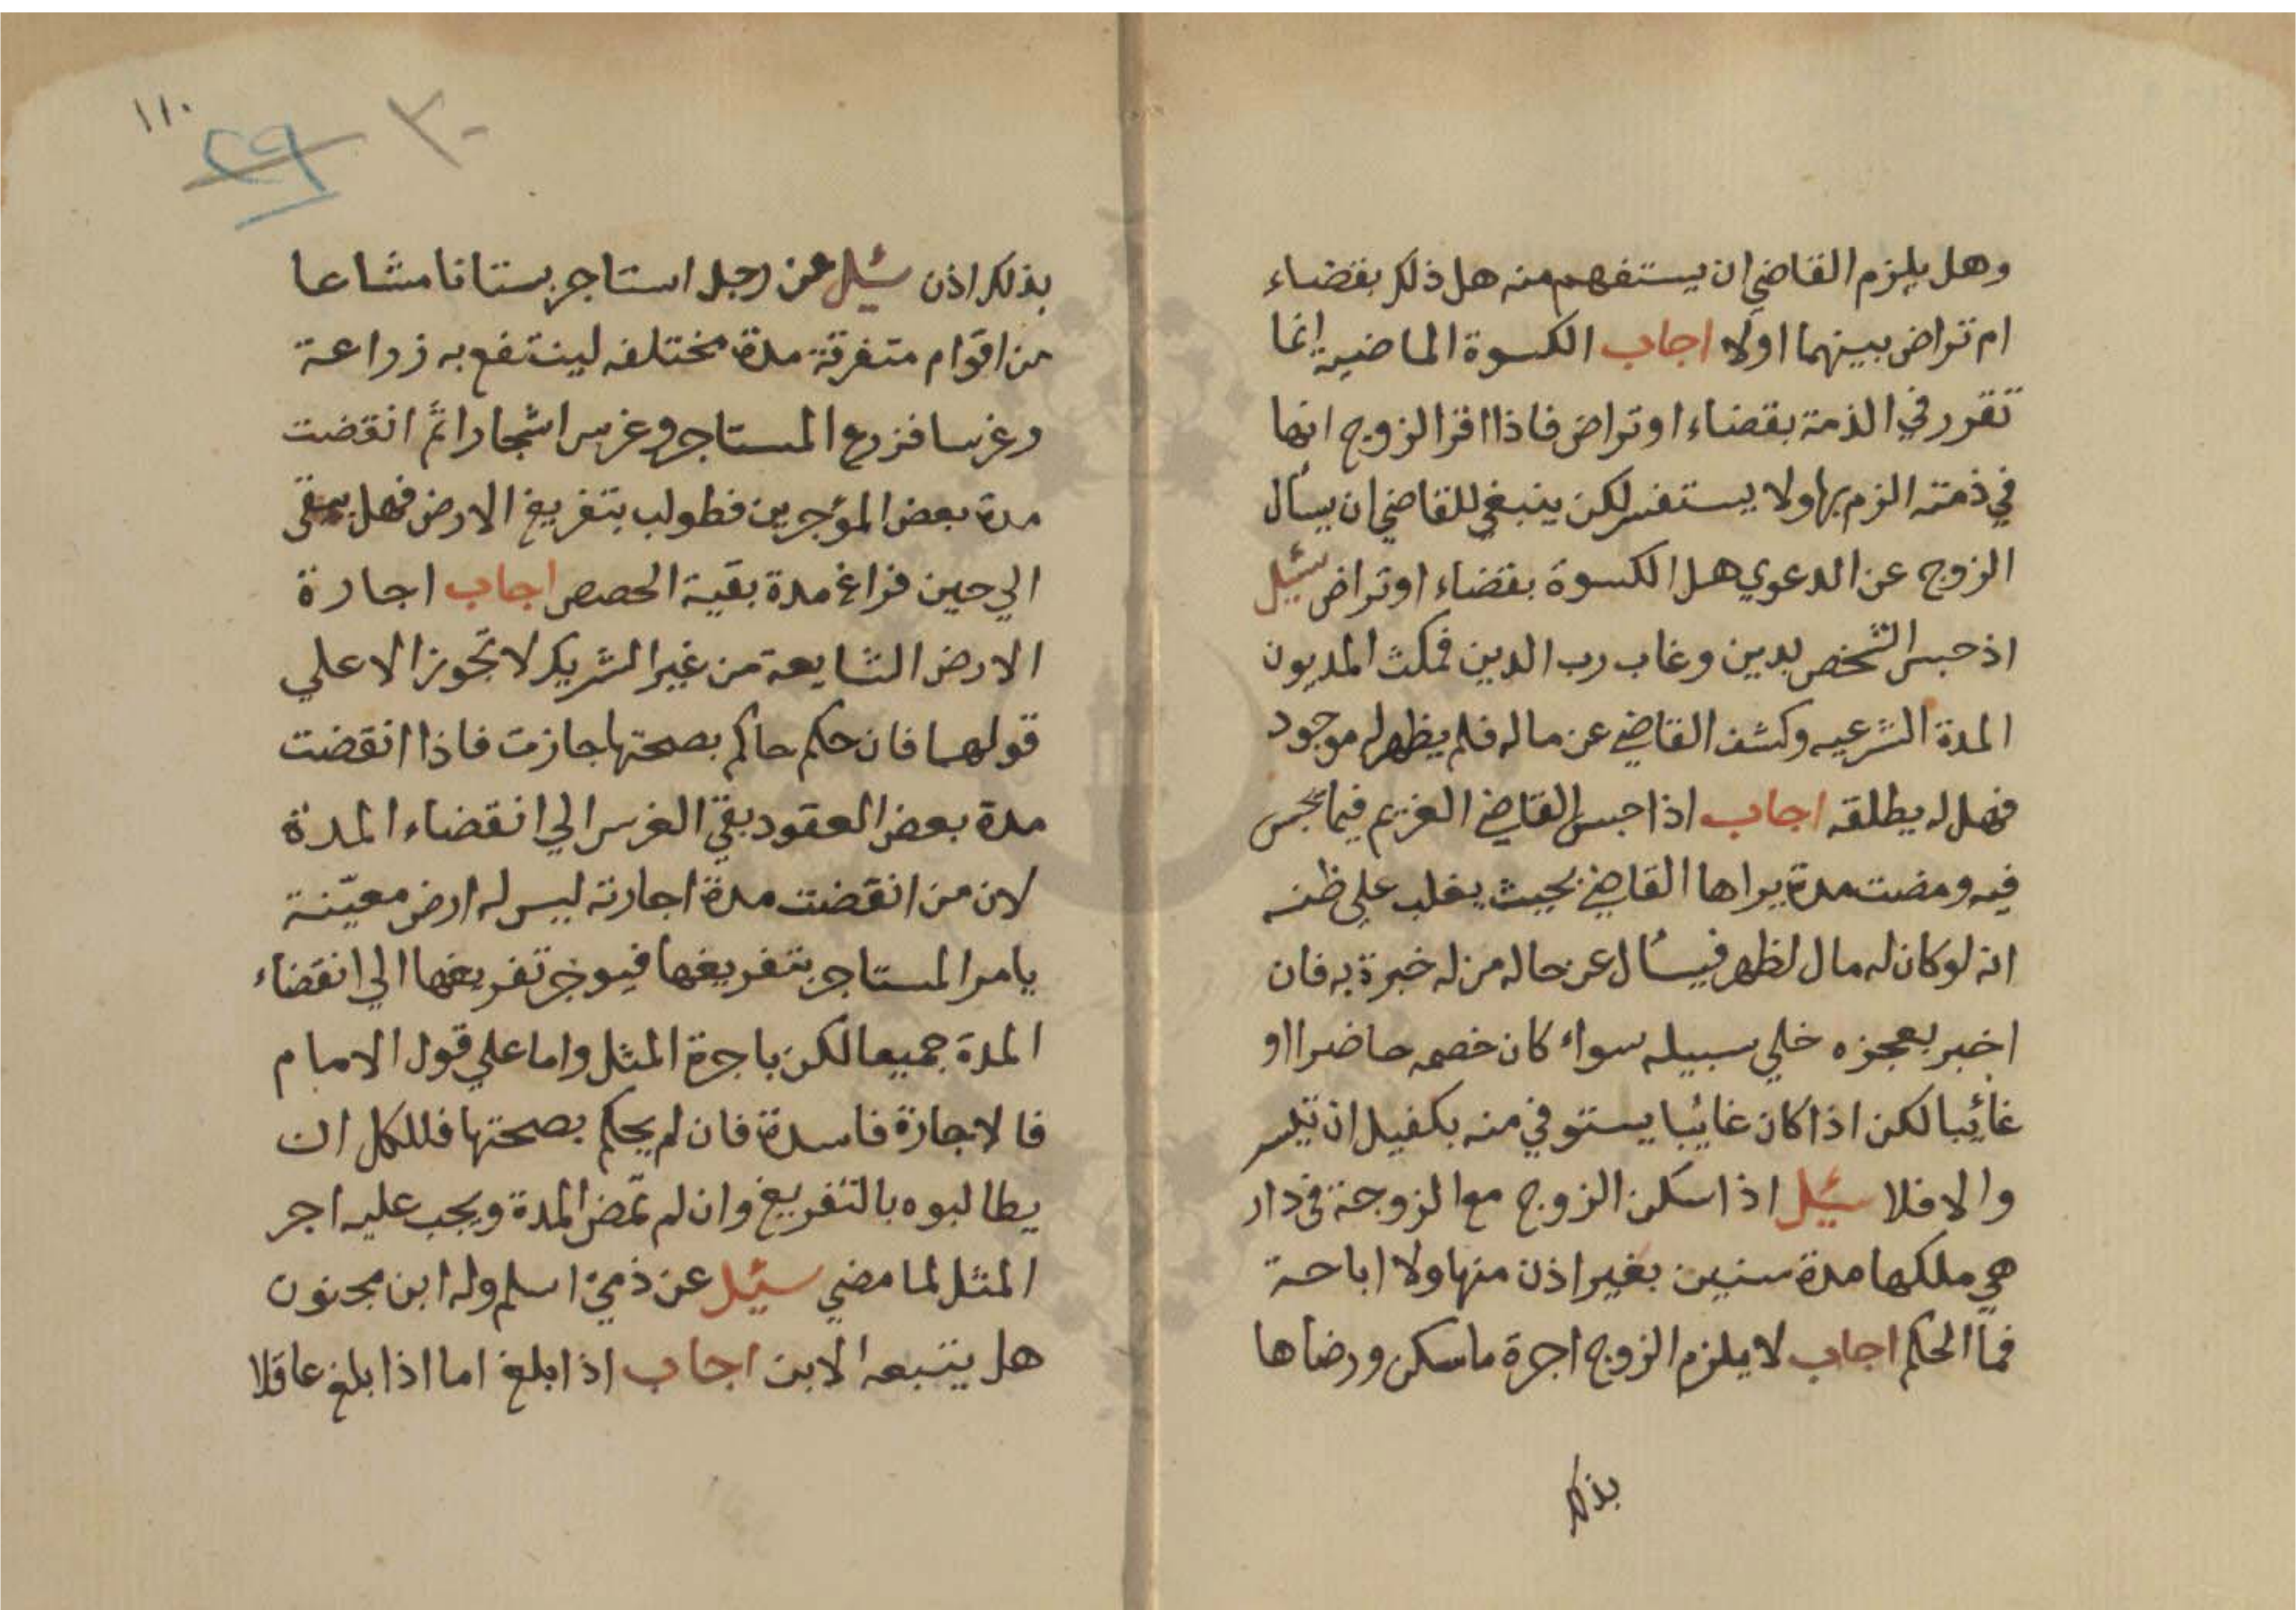 وهل يلزم القاضي ان يستفهم منه هل ذلك بقضاء
ام تراض بينهما اولا اجاب الكسوة الماضية انما
تقرر في الذمة بقضاء او تراض فاذا اقر الزوج انها
في ذمته الزم بها ولا يستفسر لكن ينبغي للقاضي ان يسأل
الزوج عن الدعوي هل الكسوة بقضاء او تراض سئل
اذ حبس الشخص بدين وغاب رب الدين فمكث المديون
المدة الشرعيه وكشف القاضي عن ماله فلم يظهر له موجود
فهل له يطلقه اجاب اذا حبس القاضي الغريم فيما يحبس
فيه ومضت مدة يراها القاضي بحيث يغلب علي ظنه
انه لو كان له مال لظهر فيسأل عن حاله من له خبرة به فان
اخبر بعجزه خلي سبيله سواء كان خصمه حاضرا او
غائبا لكن اذا كان غائبا يستوفي منه بكفيل ان تيسر
والا فلا سئل اذا سكن الزوج مع الزوجة في دار
هي ملكها مدة سنين بغير اذن منها ولا اباحة
فما الحكم اجاب لا يلزم الزوج اجرة ما سكن ورضاها
بذلك
١١٠
٢٩
٣٠
بذلك اذن سئل عن رجل استاجر بستانا مشاعا
من اقوام متفرقة مدة مختلفه لينتفع به زراعة
وغرسا فزرع المستاجر وغرس اشجارا ثم انقضت
مدة بعض المؤجرين فطولب بتفريغ الارض فهل يبقي
الي حين فراغ مدة بقية الحصص اجاب اجارة
الارض الشايعة من غير الشريك لا تجوز الا علي
قولهما فان حكم حاكم بصحتها جازت فاذا انقضت
مدة بعض العقود بقي الغرس الي انقضاء المدة
لان من انقضت مدة اجارته ليس له ارض معيّنة
يامر المستاجر بتفريغها فيوخر تفريغها الي انقضاء
المدة جميعا لكن باجرة المثل واما علي قول الامام
فالاجارة فاسدة فان لم يحكم بصحتها فللكل ان
يطالبوه بالتفريغ وان لم تمض المدة ويجب عليه اجر
المثل لما مضي سئل عن ذمي اسلم وله ابن مجنون
هل يتبعه الابن اجاب اذا بلغ اما اذا بلغ عاقلا